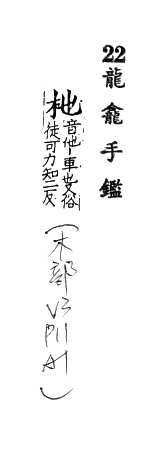 22龍龕手鑑
杝音他車㸙俗
徒可力知二反
(木部V.3P11A1)